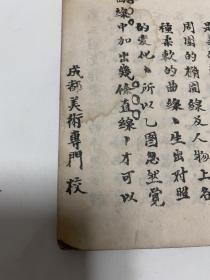 是
周圍的橢圓線及人物上各
種柔軟的曲線、生出對照
的变化、所以乙圖忽然覺
曲線中加出幾條直線、才可以
成都美術專門 校